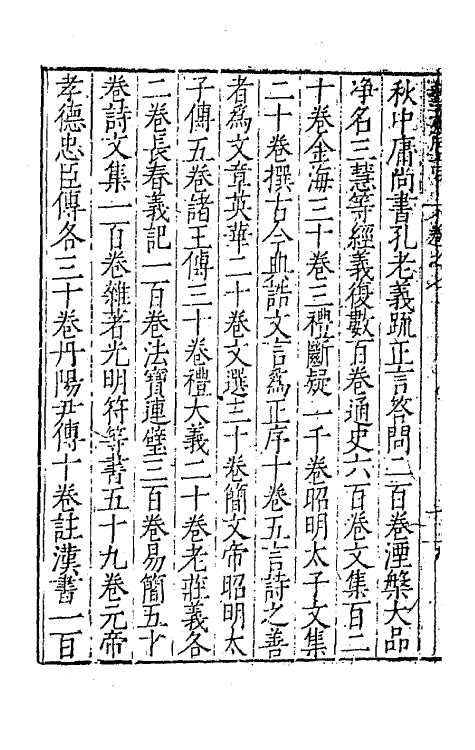 秋中庸尚書孔老義疏正言答問二百卷湮槃大品
净名三慧等經義復數百卷通史六百卷文集百二
十卷金海三十卷三禮斷疑一千卷昭明太子文集
二十卷撰古今典誥文言爲正序十卷五言詩之善
者爲文章英華二十卷文選三十卷簡文帝昭明太
子傳五卷諸王傳三十卷禮大義二十卷老莊義各
二卷長春義記一百卷法寶連璧三百卷易簡五十
卷詩文集一百卷雜著光明符等書五十九卷元帝
孝德忠臣傳各三十卷丹陽尹傳十卷註漢書一百